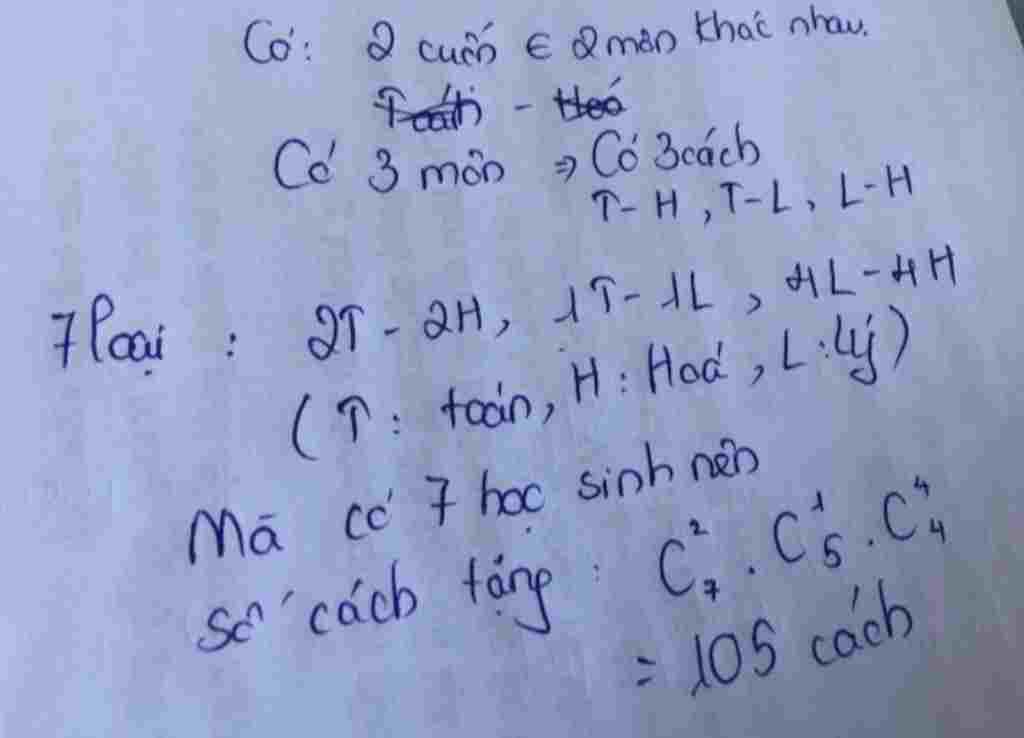 Có: 2 cuốn ∈ 2 môn khác nhau.
Toán - Hoá
Có 3 môn ⇒ Có 3 cách
T-H, T-L, L-H
7 loại: 2T-2H, 1T-1L, 4L-4H
(T: toán, H: Hoá, L: lý)
Mã có 7 học sinh nên
số cách tặng: C₇². C₅¹. C₄⁴
= 105 cách